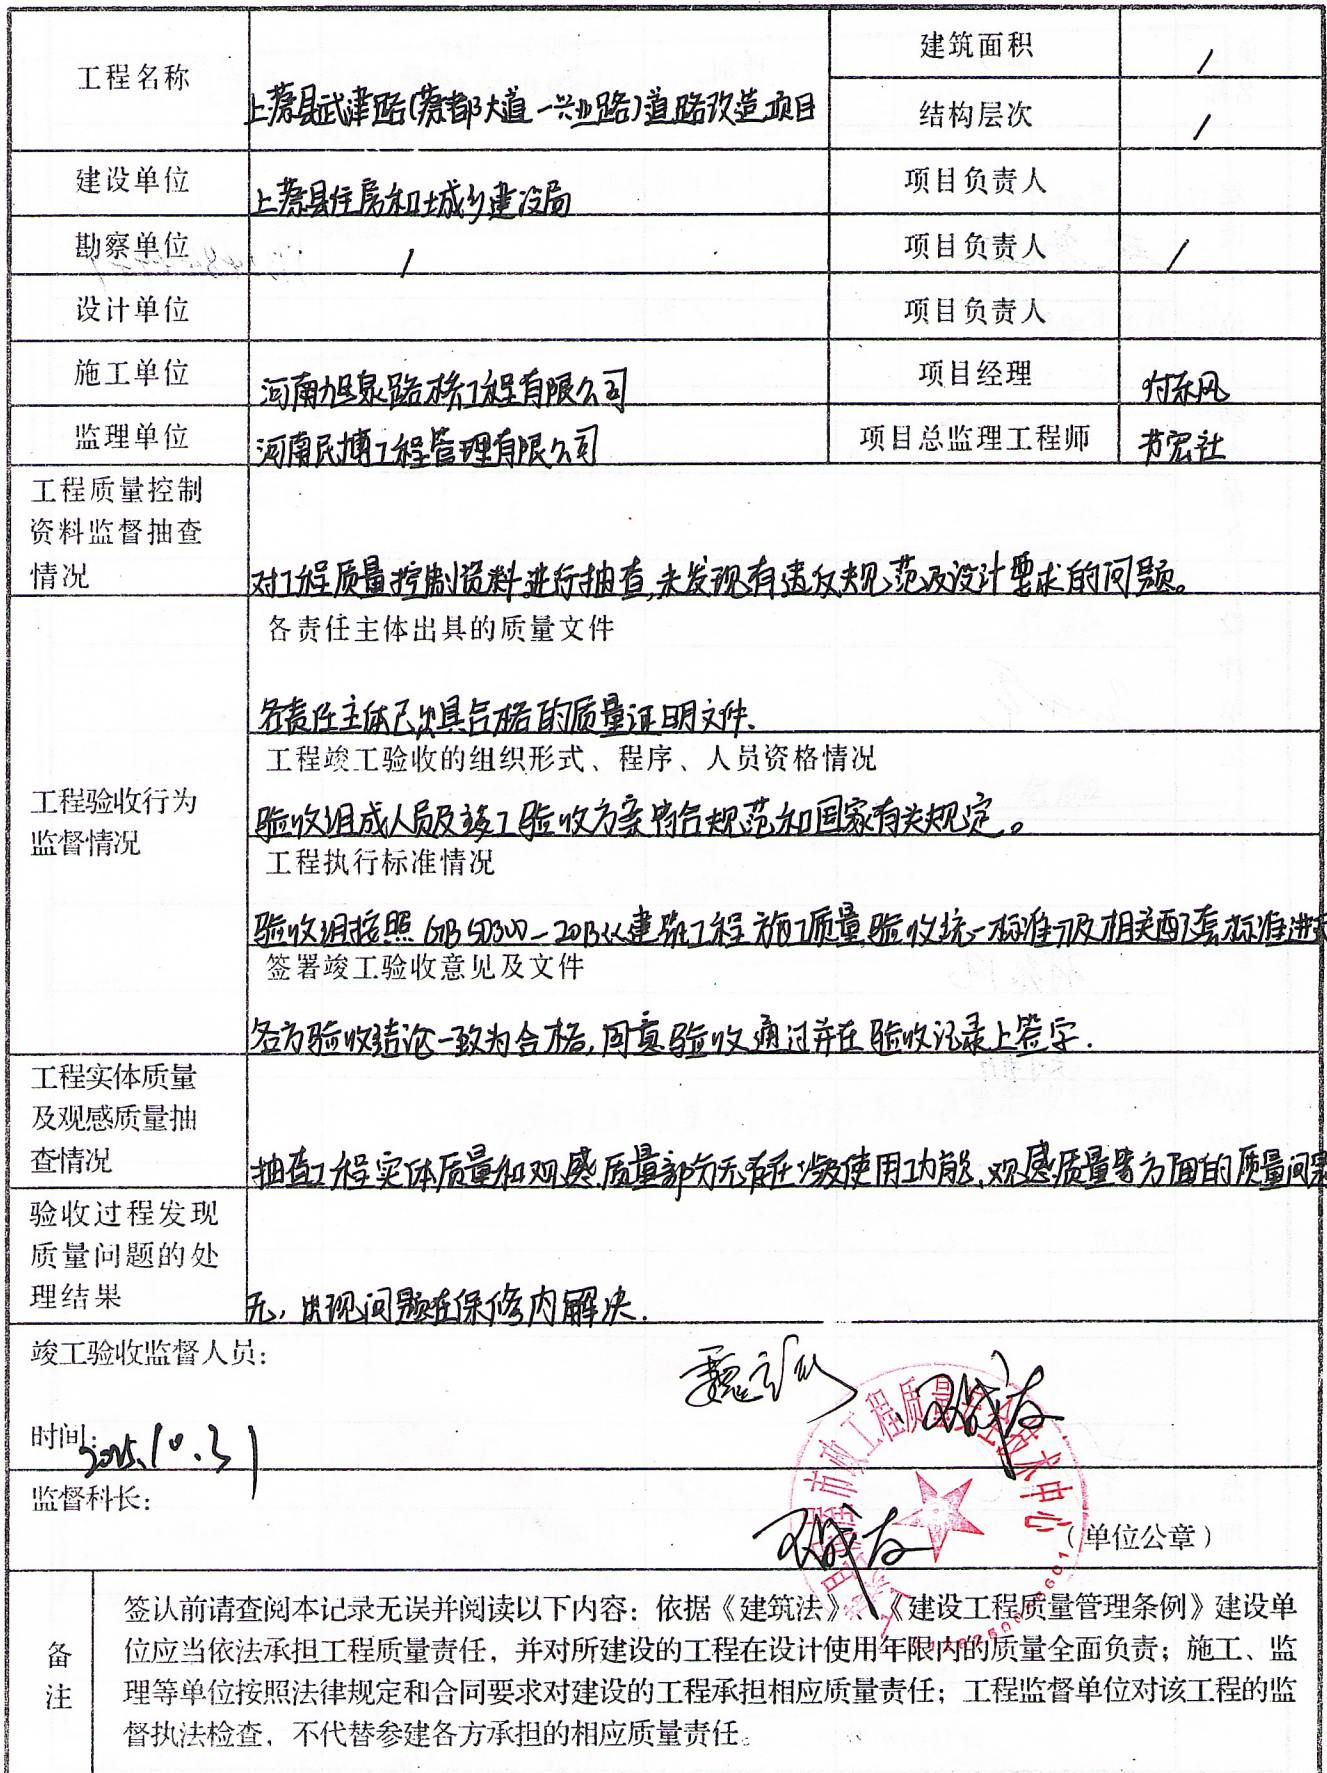 工程名称
上蔡县武津路(蔡都大道一兴业路)道路改造项目
建筑面积 /
结构层次 /
建设单位 上蔡县住房和城乡建设局 项目负责人
勘察单位 / 项目负责人 /
设计单位 项目负责人
施工单位 河南旭泉路桥工程有限公司 项目经理 付东风
监理单位 河南民博工程管理有限公司 项目总监理工程师 宏社
工程质量控制
资料监督抽查
情况
对工程质量控制资料进行抽查,未发现有违反规范及设计要求的问题。
工程验收行为
监督情况
各责任主体出具的质量文件
各责任主体已出具合格的质量证明文件.
工程竣工验收的组织形式、程序、人员资格情况
验收组成人员及竣工验收方案符合规范和国家有关规定。
工程执行标准情况
验收组按照GB50300-2013《建筑工程施工质量验收统一标准》及相关配套标准进
签署竣工验收意见及文件
各方验收结论一致为合格,同意验收通过并在验收记录上签字.
工程实体质量
及观感质量抽
查情况
抽查工程实体质量和观感质量部分无存在涉及使用功能、观感质量等方面的质量问
验收过程发现
质量问题的处
理结果
无,出现问题在保修内解决.
竣工验收监督人员:
时间: 2025.10.31
监督科长:
市政工程质量安全技术中心
(单位公章)
备注
签认前请查阅本记录无误并阅读以下内容:依据《建筑法》、《建设工程质量管理条例》建设单
位应当依法承担工程质量责任,并对所建设的工程在设计使用年限内的质量全面负责;施工、监
理等单位按照法律规定和合同要求对建设的工程承担相应质量责任;工程监督单位对该工程的监
督执法检查,不代替参建各方承担的相应质量责任。